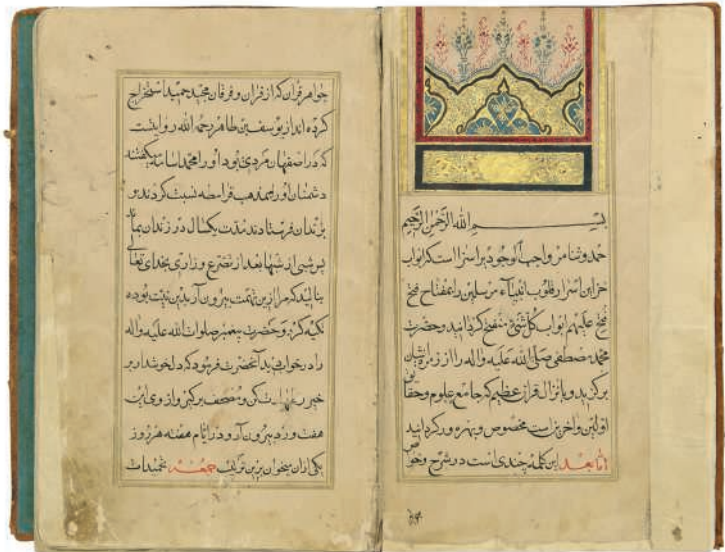 بسم الله الرحمن الرحیم
حمد و ثنا مر واجب الوجودیرا سزا است که ابواب
خزاین اسرار قلوب انبیاء مرسلین را بمفتاح فتح
فتح علیهم ابواب کل شئ منفتح کردانید و حضرت
محمد مصطفی صلی الله علیه واله را از زمره ایشان
برکزید و بانزال قران عظیم که جامع علوم و حقایق
اولین و اخرین است مخصوص و بهره ور کردانید
اما بعد این کلمه چندی است در شرح و خواص
جواهر قران که از قران و فرقان مجید حمید استخراج
کرده اند از یوسف بن طاهر رحمه الله روایتست
که در اصفهان مردی بود او را محمد اسامه میکفتند
دشمنان او را بمذهب قرامطه نسبت کردند و
بزندان فرستادند مدت یکسال در زندان بماند
پس شبی از شبها بعد از تضرع و زاری بخدای تعالی
بنالید که مرا ازین تهمت بیرون آر بدین نیت بوده
تکیه کرد و حضرت پیغمبر صلوات الله علیه واله
را در خواب دید آنحضرت فرمود که دلخوشدار بر
خیز و طهارت کن و مصحف برکیر و از وی این
هفت ورد بیرون آر و در ایام هفته هر روز
یکی ازان بخوان برین ترتیب جمعه تحمیدات